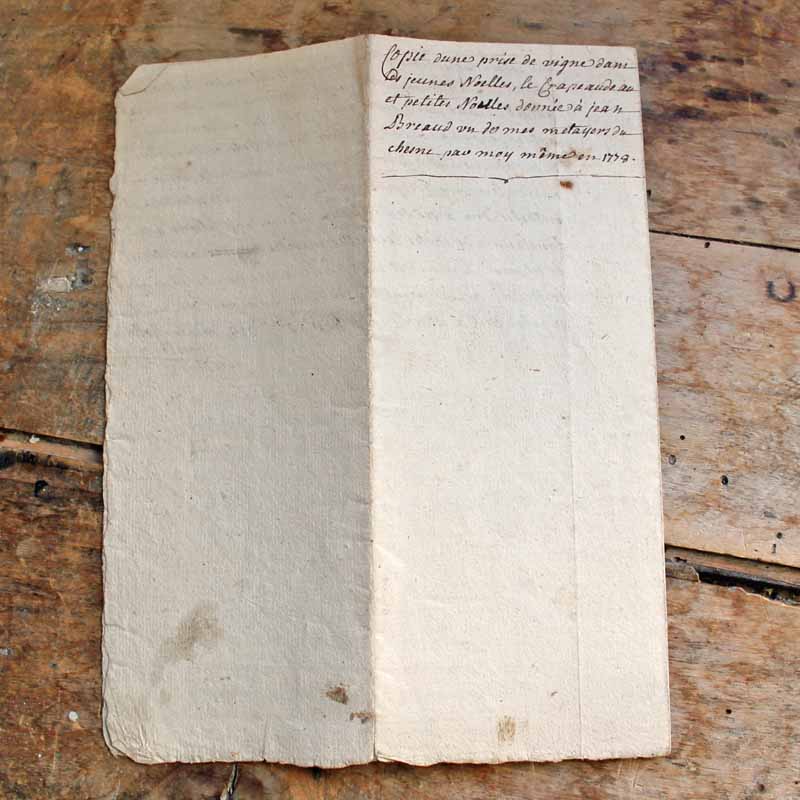 Copie dune prise de vigne dans
les jeunes Noelles, le Crapeaudeau
et petites Noelles donnée à jean
Breaud un de mes metayers du
chesne par moy même en 1778.